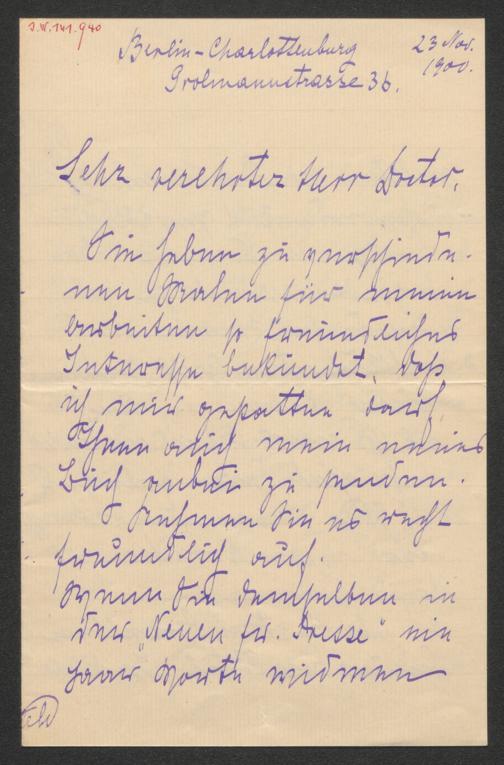 I.N. 141.940
Berlin-Charlottenburg
23 Nov.
1900.
Grolmannstrasse 36.
Sehr verehrter Herr Doctor,
Sie haben zu verschiede-
nen Malen für meine
Arbeiten so freundliches
Interesse bekundet, daß
ich mir gestatten darf,
Ihnen auch mein neues
Buch anbei zu senden.
Nehmen Sie es recht
freundlich auf.
Wenn Sie demselben in
der "Neuen fr. Presse" ein
paar Worte widmen